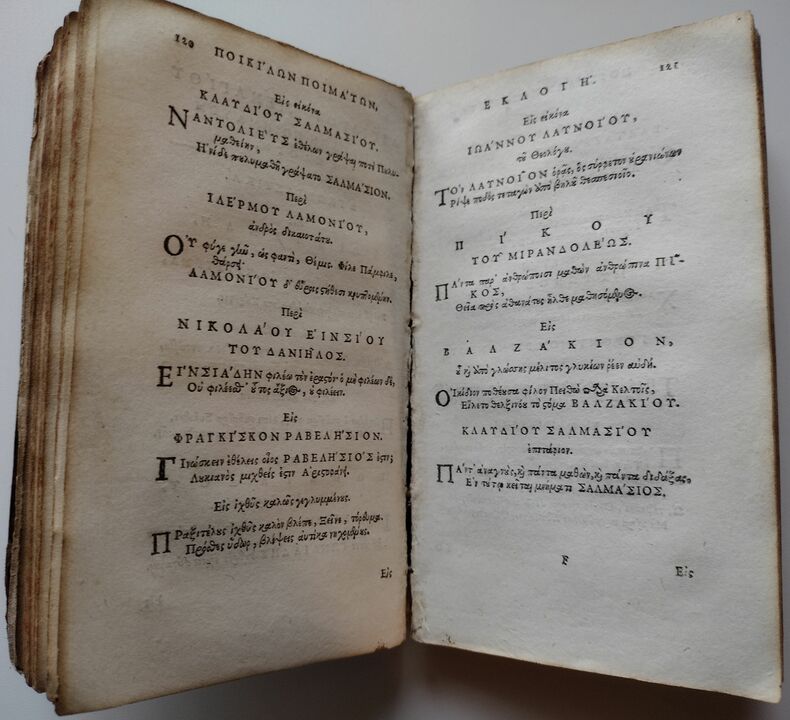 120 ΠΟΙΚΙΛΩΝ ΠΟΙΜΑΤΩΝ,
Εἰς εἰκόνα
ΚΛΑΥΔΙΟΥ ΣΑΛΜΑΣΙΟΥ.
ΝΑΝΤΟΛΙΕΥΣ ἐθέλων γράψαι ποτὲ Πολυ-
μαθείην,
Ἠνίδε πολυμαθῆ γράψατο ΣΑΛΜΑΣΙΟΝ.
Περὶ
ΙΛΕΡΜΟΥ ΛΑΜΟΝΙΟΥ,
ἀνδρὸς δικαιοτάτου.
ΟΥ φύγε γαῖαν, ὡς φαντὶ, Θέμις. Φίλε Πάμφιλε,
θάρσει
ΛΑΜΟΝΙΟΥ δ' εὕρεις στήθεσι κρυπτομένην.
Περὶ
ΝΙΚΟΛΑΟΥ ΕΙΝΣΙΟΥ
ΤΟΥ ΔΑΝΙΗΛΟΣ.
ΕΙΝΣΙΑΔΗΝ φιλέω τὸν ἐράσμιον· ὁ μὴ φιλέων δὲ,
Οὐ φιλέεσθ' οὗτος ἄξιος, οὐ φιλέειν.
Εἰς
ΦΡΑΓΚΙΣΚΟΝ ΡΑΒΕΛΗΣΙΟΝ.
ΓΙνώσκειν ἐθέλεις οἷος ΡΑΒΕΛΗΣΙΟΣ ἐστιν;
Λυκιανὸς μιχθεὶς ἐστιν Ἀριστοφάνῃ.
Εἰς ἰχθῦς καλῶς γεγλυμμένους.
ΠΡαξιτέλους ἰχθῦς καλὸν βλέπε, Ξεῖνε, τόρευμα.
Πρόσθες ὕδωρ, βλέψεις αὐτίκα νηχομένους.
Εἰς
ΕΚΛΟΓΗ. 121
Εἰς εἰκόνα
ΙΩΑΝΝΟΥ ΛΑΥΝΟΙΟΥ,
τοῦ Θεολόγου.
ΤΟΝ ΛΑΥΝΟΙΟΝ ὁρᾷς, ὃς σύρφετον οὐρανιώνων
Ρῖψε ποδὸς τεταγὼν ἀπὸ βηλοῦ θεσπεσίοιο.
Περὶ
ΠΙΚΟΥ
ΤΟΥ ΜΙΡΑΝΔΟΛΕΩΣ.
ΠΑντα παρ' ἀνθρώποισι μαθὼν ἀνθρώπινα ΠΙ-
ΚΟΣ,
Θεῖα πρὸς ἀθανάτους ἦλθε μαθησόμενος.
Εἰς
ΒΑΛΖΑΚΙΟΝ,
οὗ καὶ ἀπὸ γλώσσης μέλιτος γλυκίων ῥέεν αὐδή.
ΟἸκίδιον ποθέουσα φίλον Πειθὼ παρὰ Κελτοῖς,
Εἵλετο θελξινόου τὸ στόμα ΒΑΛΖΑΚΙΟΥ.
ΚΛΑΥΔΙΟΥ ΣΑΛΜΑΣΙΟΥ
ἐπιτάφιον.
ΠΑντ' ἀναγνοὺς, καὶ πάντα μαθὼν, καὶ πάντα διδάξας,
Ἐν τούτῳ κεῖται μνήματι ΣΑΛΜΑΣΙΟΣ.
F Εἰς